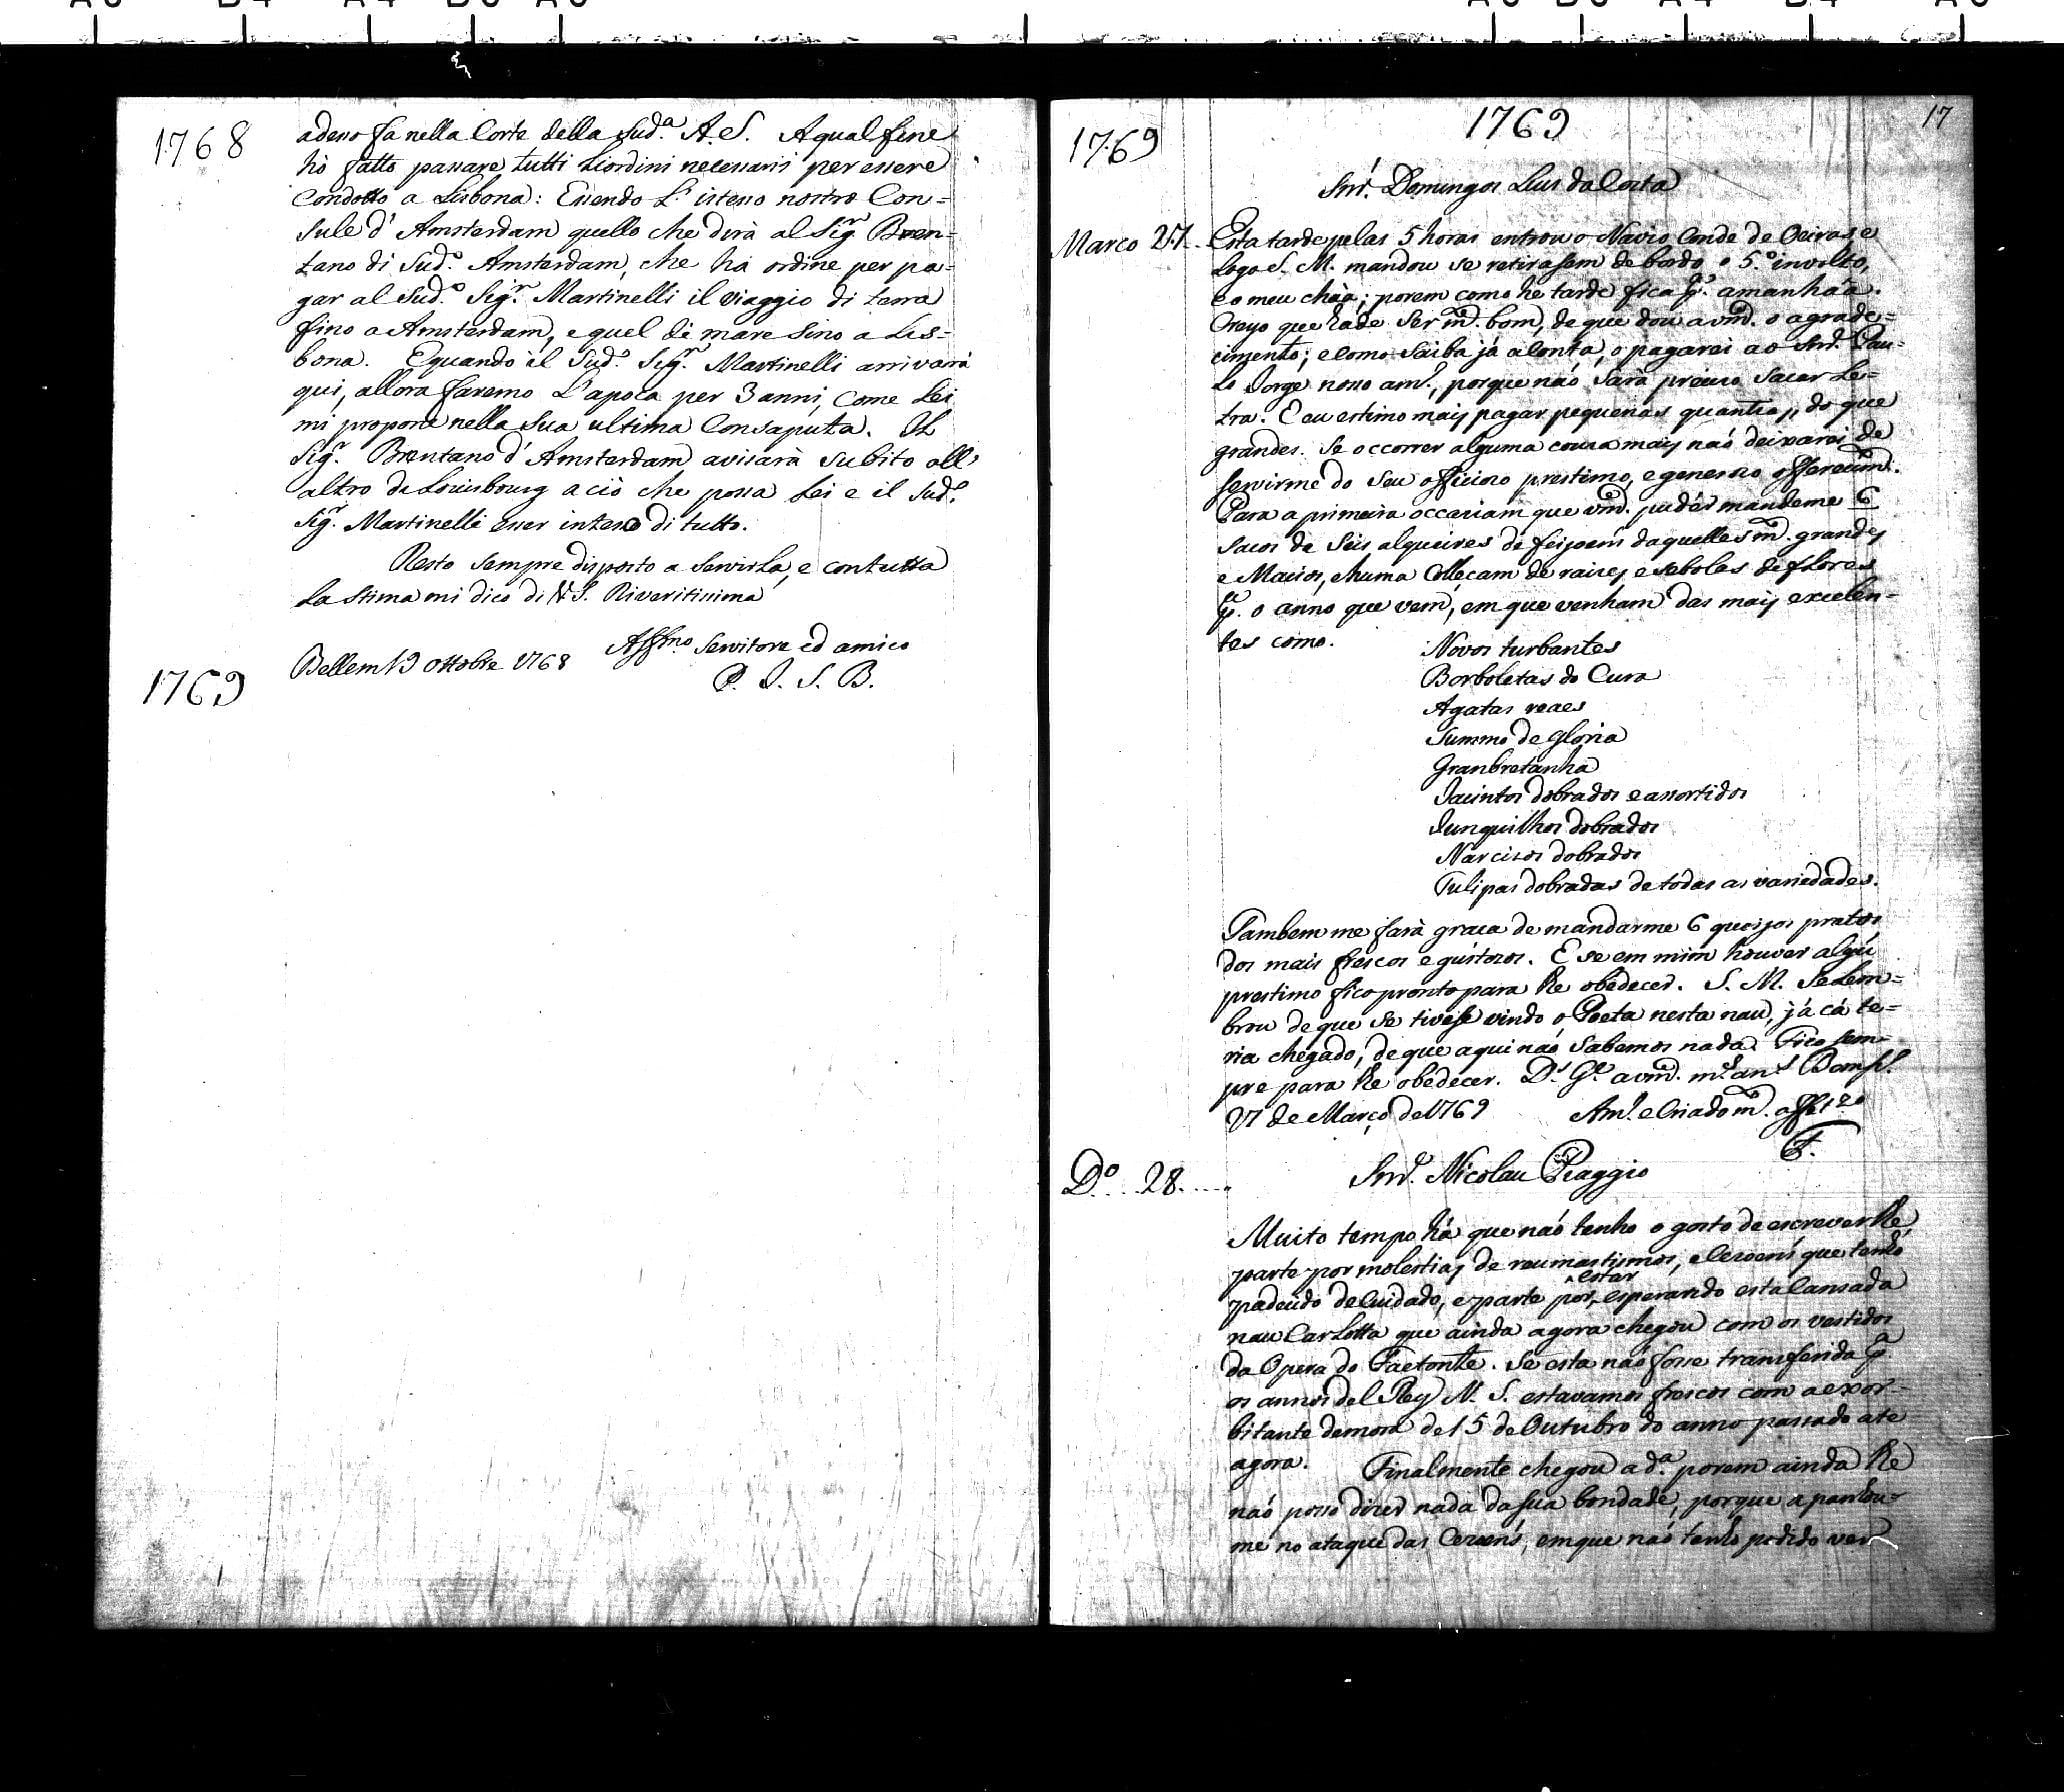 1768
adesso fa nella Corte della Sud.ª A. S. A qual fine
hò fatto passare tutti Liordini necessarii per essere
Condotto a Lisbona: Essendo L'istesso nostro Con=
sule d'Amsterdam quello che dirà al Sigr. Bren=
tano di Sud.º Amsterdam, che hà ordine per pa=
gar al Sud.º Sigr. Martinelli il viaggio di terra
fino a Amsterdam, e quel di mare sino a Lis=
bona. E quando il Sud.º Sigr. Martinelli arrivarà
qui, allora faremo L'apoca per 3 anni, come Lei
mi propone nella sua ultima Consaputa. Il
Sigr. Brentano d'Amsterdam avisarà subito all'
altro di Louisbourg a ciò che possa Lei e il Sud.º
Sigr. Martinelli esser inteso di tutto.
Resto sempre disposto a servirLa, e con tutta
La stima mi dico di V. S. Riveritissima
Affmo. Servitore ed amico
Bellem 19 ottobre 1768
P. J. S. B.
1769
17
1769
1769
Snr. Domingos Luis da Costa
Março 27. Esta tarde pelas 5 horas entrou o Navio Conde de Oeiras, e
Logo S. M. mandou se retirasem de bordo o 5.º involto,
e o meu chàa; porem como he tarde fica pª. amanhãa.
Creyo que hade ser mto. bom, de que dou a vmce. o agrade=
cimento; e como saiba já a Conta, o pagarei ao Snr. Pau=
lo Jorge nosso amº., porque não sarà preciso sacar Le=
tra. E eu estimo mais pagar pequenas quantias, do que
grandes. Se occorrer alguma cousa mais não deixarei de
servirme do seu officioso prestimo, e generoso offerecimto.
Para a primeira occasiam que vmce. pudér mandeme 6
sacos de seis alqueires de feijoens daquelles mto. grandes
e Macios, e huma Colleçam de raizes e sebolas de flores
pª. o anno que vem, em que venham das mais excelen=
tes como.
Novos turbantes
Borboletas do Cura
Agatas reaes
Summo de gloria
Granbretanha
Jacintos dobrados e assortidos
Junquilhos dobrados
Narcisos dobrados
Tulipas dobradas de todas as variedades.
Tambem me farà graça de mandarme 6 queijos pratos
dos mais frescos e gustosos. E se em mim houver algũ
prestimo fico pronto para lhe obedecer. S. M. se lem=
brou de que se tivesse vindo o Poeta nesta nau, já cá te=
ria chegado, de que aqui não sabemos nada. Fico sem=
pre para lhe obedecer. Ds. Gde. a vmce. ms. ans.
27 de Março de 1769 Amº. e Criado mto.
Dº. 28. Snr. Nicolau Piaggio
Muito tempo há que não tenho o gosto de escreverlhe,
parte por molestias de reumastismos, e Cezoens que tenho
padecido de Cuidado, e parte por estar esperando esta Cansada
nau Carlotta que ainda agora chegou com os vestidos
da Opera do Faetonte. Se esta não fosse transferida pª.
os annos del Rey N. S. estavamos frescos com a exor=
bitante demora de 15 de Outubro do anno passado até
agora. Finalmente chegou a dª. porem ainda lhe
não posso dizer nada da sua bondade, porque apanhou=
me no ataque das Cezoens, em que não tenho podido ver